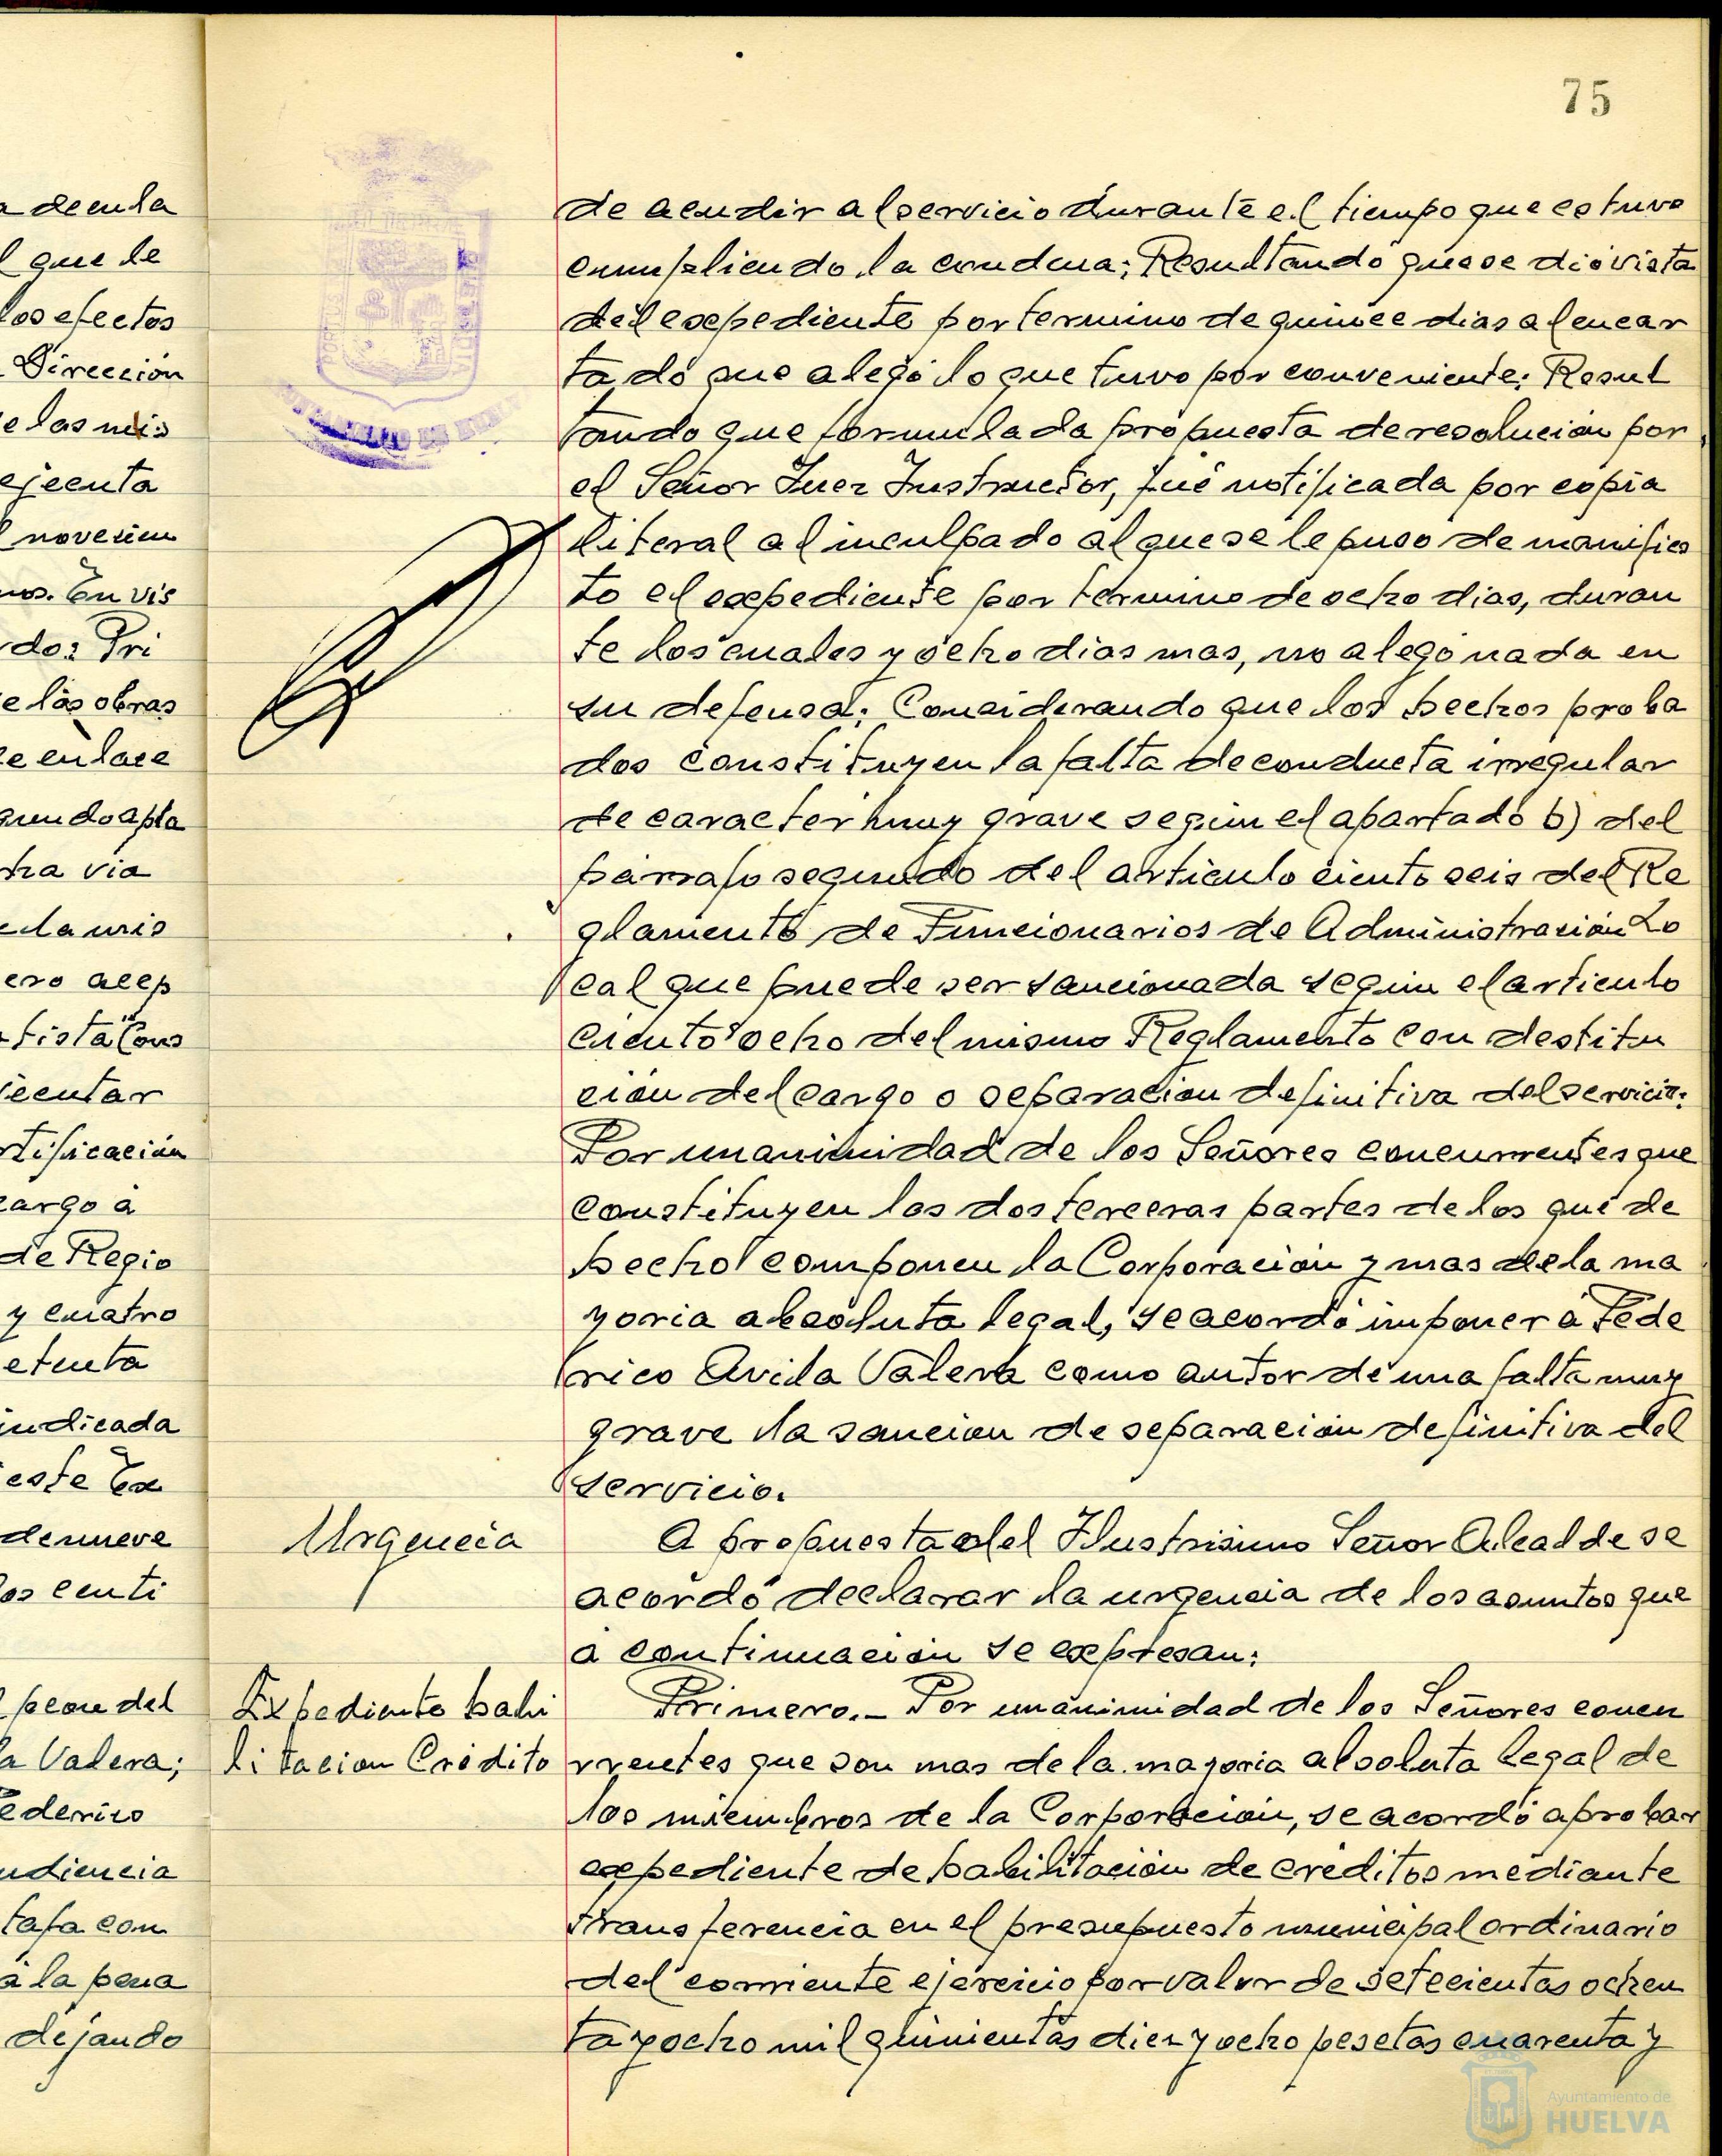 75
de acudir al servicio durante el tiempo que estuvo
cumpliendo la condena; Resultando que se dio vista
del expediente por termino de quince dias al encar
tado que alegó lo que tuvo por conveniente; Resul
tando que formulada propuesta de resolución por
el Señor Juez Instructor, fué notificada por copia
literal al inculpado al que se le puso de manifies
to el expediente por termino de ocho dias, duran
te los cuales y ocho dias mas, no alegó nada en
su defensa; Considerando que los hechos proba
dos constituyen la falta de conducta irregular
de caracter muy grave según el apartado b) del
párrafo segundo del artículo ciento seis del Re
glamento de Funcionarios de Administración Lo
cal que puede ser sancionada según el articulo
ciento ocho del mismo Reglamento con destitu
ción del cargo o separación definitiva del servicio;
Por unanimidad de los Señores concurrentes que
constituyen las dos terceras partes de los que de
hecho componen la Corporación y mas de la ma
yoria absoluta legal, se acordó imponer á Fede
rico Avila Valera como autor de una falta muy
grave la sanción de separación definitiva del
servicio.
Urgencia
A propuesta del Ilustrisimo Señor Alcalde se
acordó declarar la urgencia de los asuntos que
á continuación se expresan:
Expediente habi
litacion Crédito
Primero.- Por unánimidad de los Señores concu
rrentes que son mas de la mayoria absoluta legal de
los miembros de la Corporación, se acordó aprobar
expediente de habilitación de créditos mediante
transferencia en el presupuesto municipal ordinario
del corriente ejercicio por valor de setecientas ochen
ta y ocho mil quinientas diez y ocho pesetas cuarenta y
a decula
l que le
los efectos
Dirección
e las mis
ejecuta
novecien
os. En vis
do: Pri
e las obras
e enlace
gundo apla
tra via
ero acep
tista Cons
jecutar
rtificación
cargo á
de Regio
y cuatro
etenta
indicada
este Ex
de nueve
os centi
peon del
a Valera;
Federico
udiencia
tafa con
á la pena
dejando
Ayuntamiento de
HUELVA